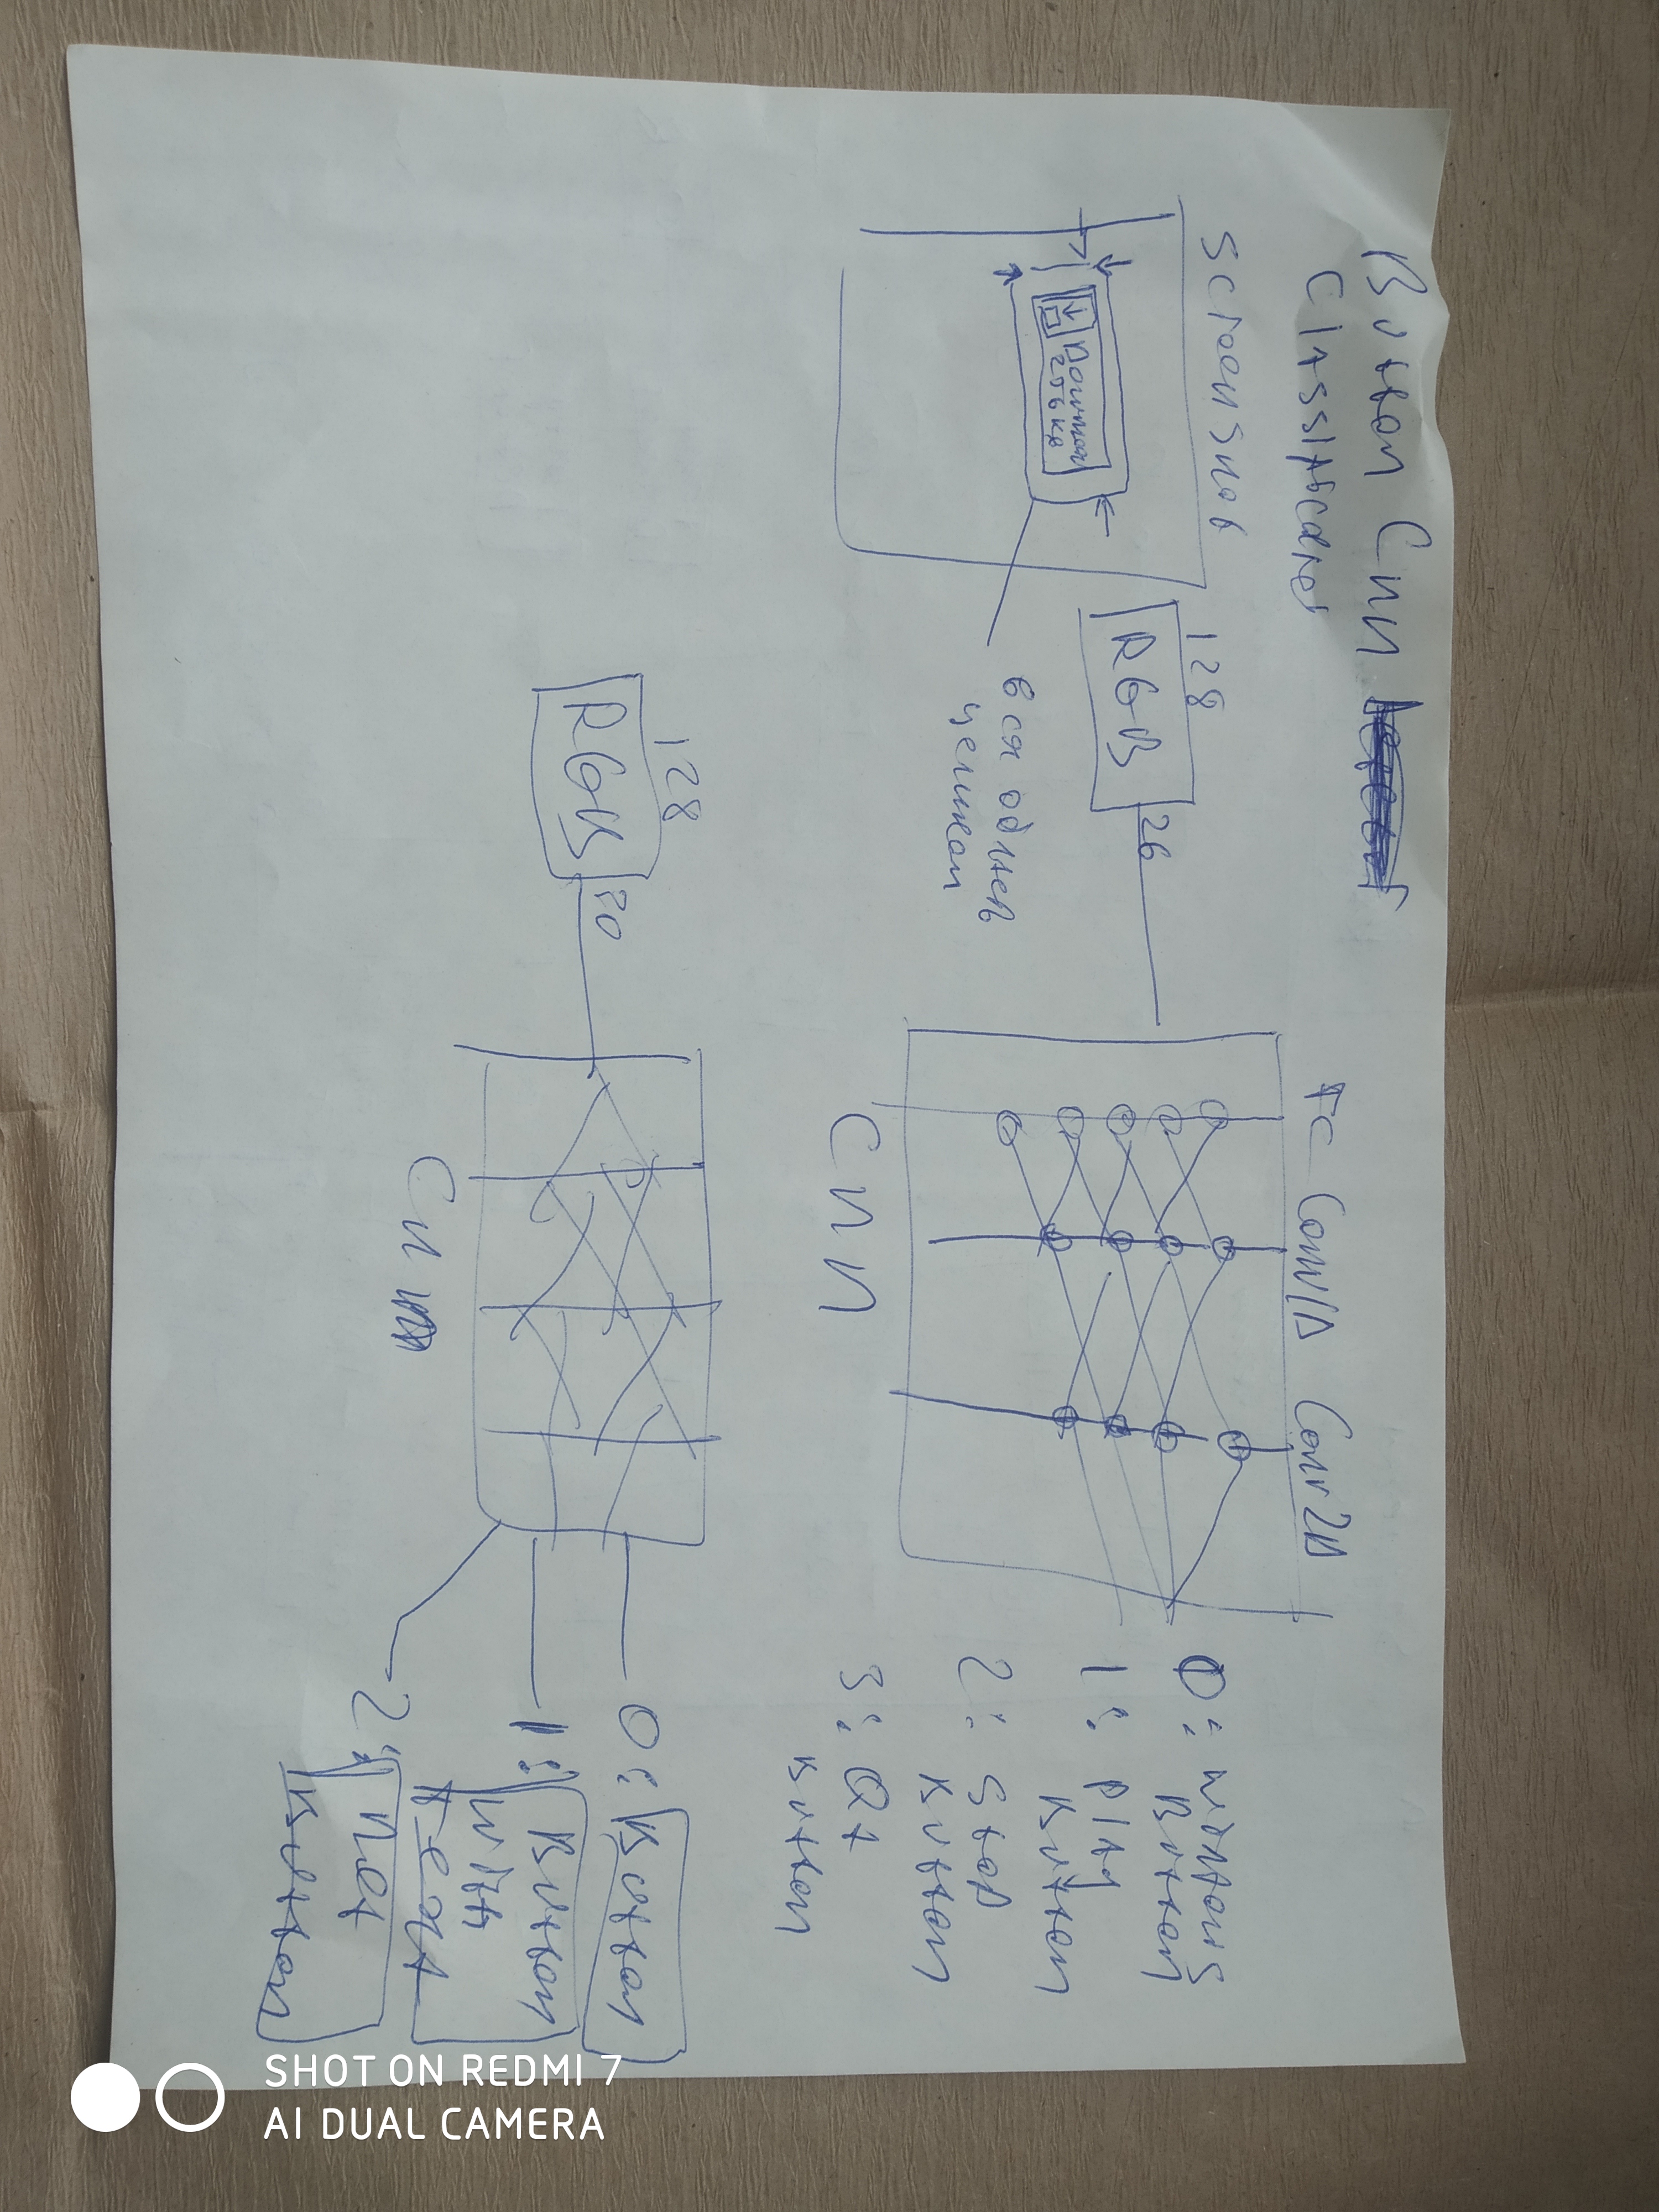 Button Cnn
Classificator
Screenshot
128
RGB
26
Download
256 KB
вся область
целиком
FC Conv1D Conv2D
Cnn
0: Windows
Button
1: Play
Button
2: Stop
Button
3: Qt
Button
128
RGB
30
0: Button
1: Button
With
text
2: Not
Button
SHOT ON REDMI 7
AI DUAL CAMERA